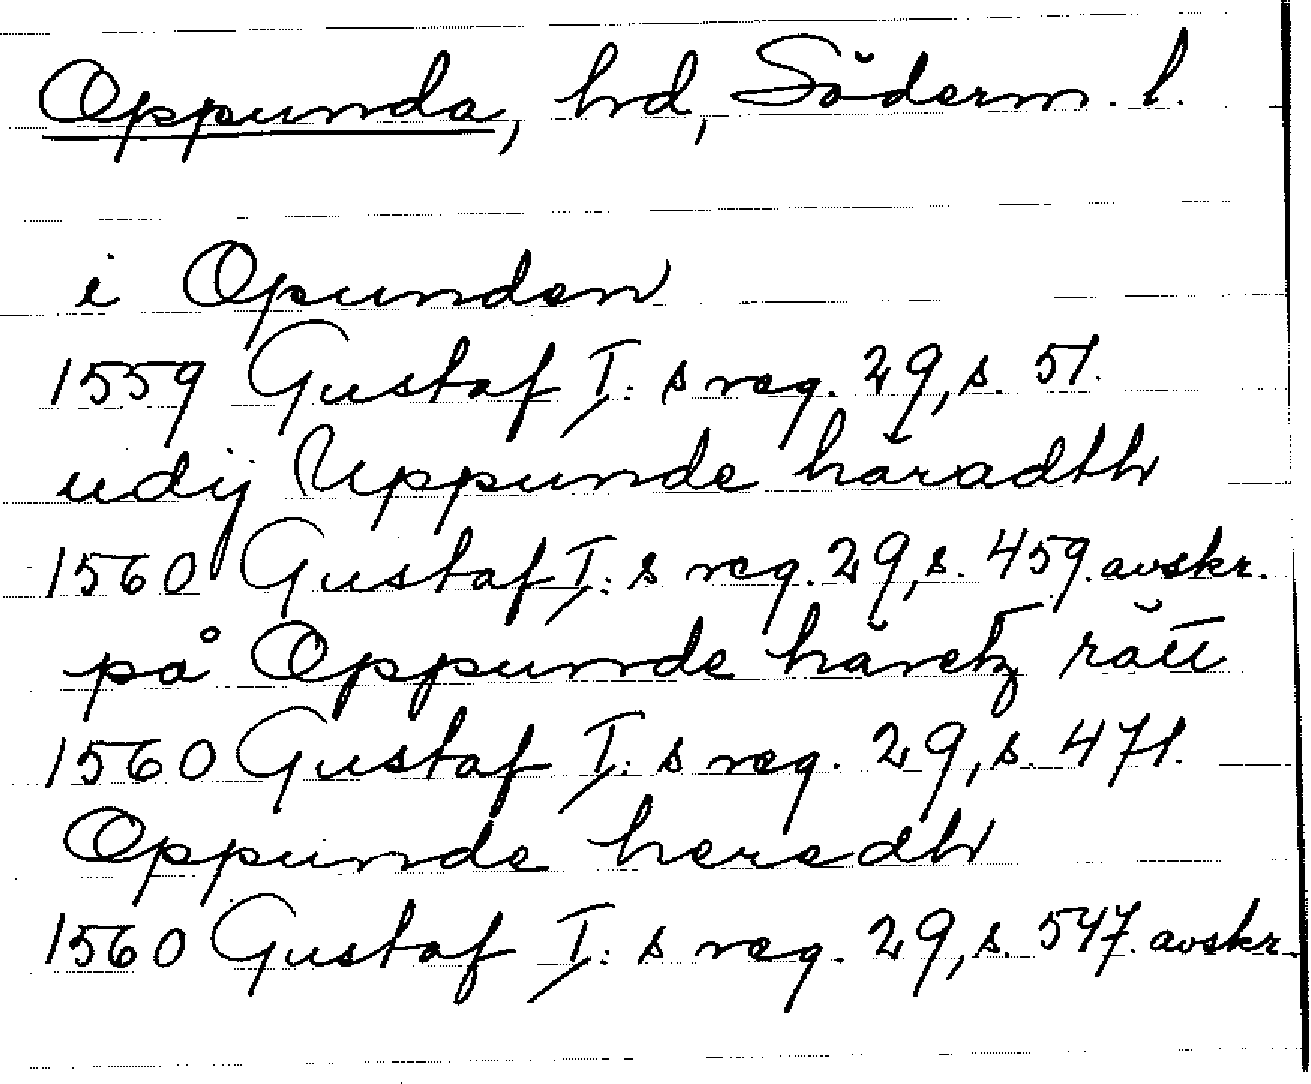 Oppunda, hd, Söderm. l.
i Opunden
1559 Gustaf I:s reg. 29, s. 51.
udij Uppunde häradth
1560 Gustaf I:s reg. 29, s. 459. avskr.
på Oppunde häretz rätt
1560 Gustaf I:s reg. 29, s. 471.
Oppunde heredh
1560 Gustaf I:s reg. 29, s. 547. avskr.